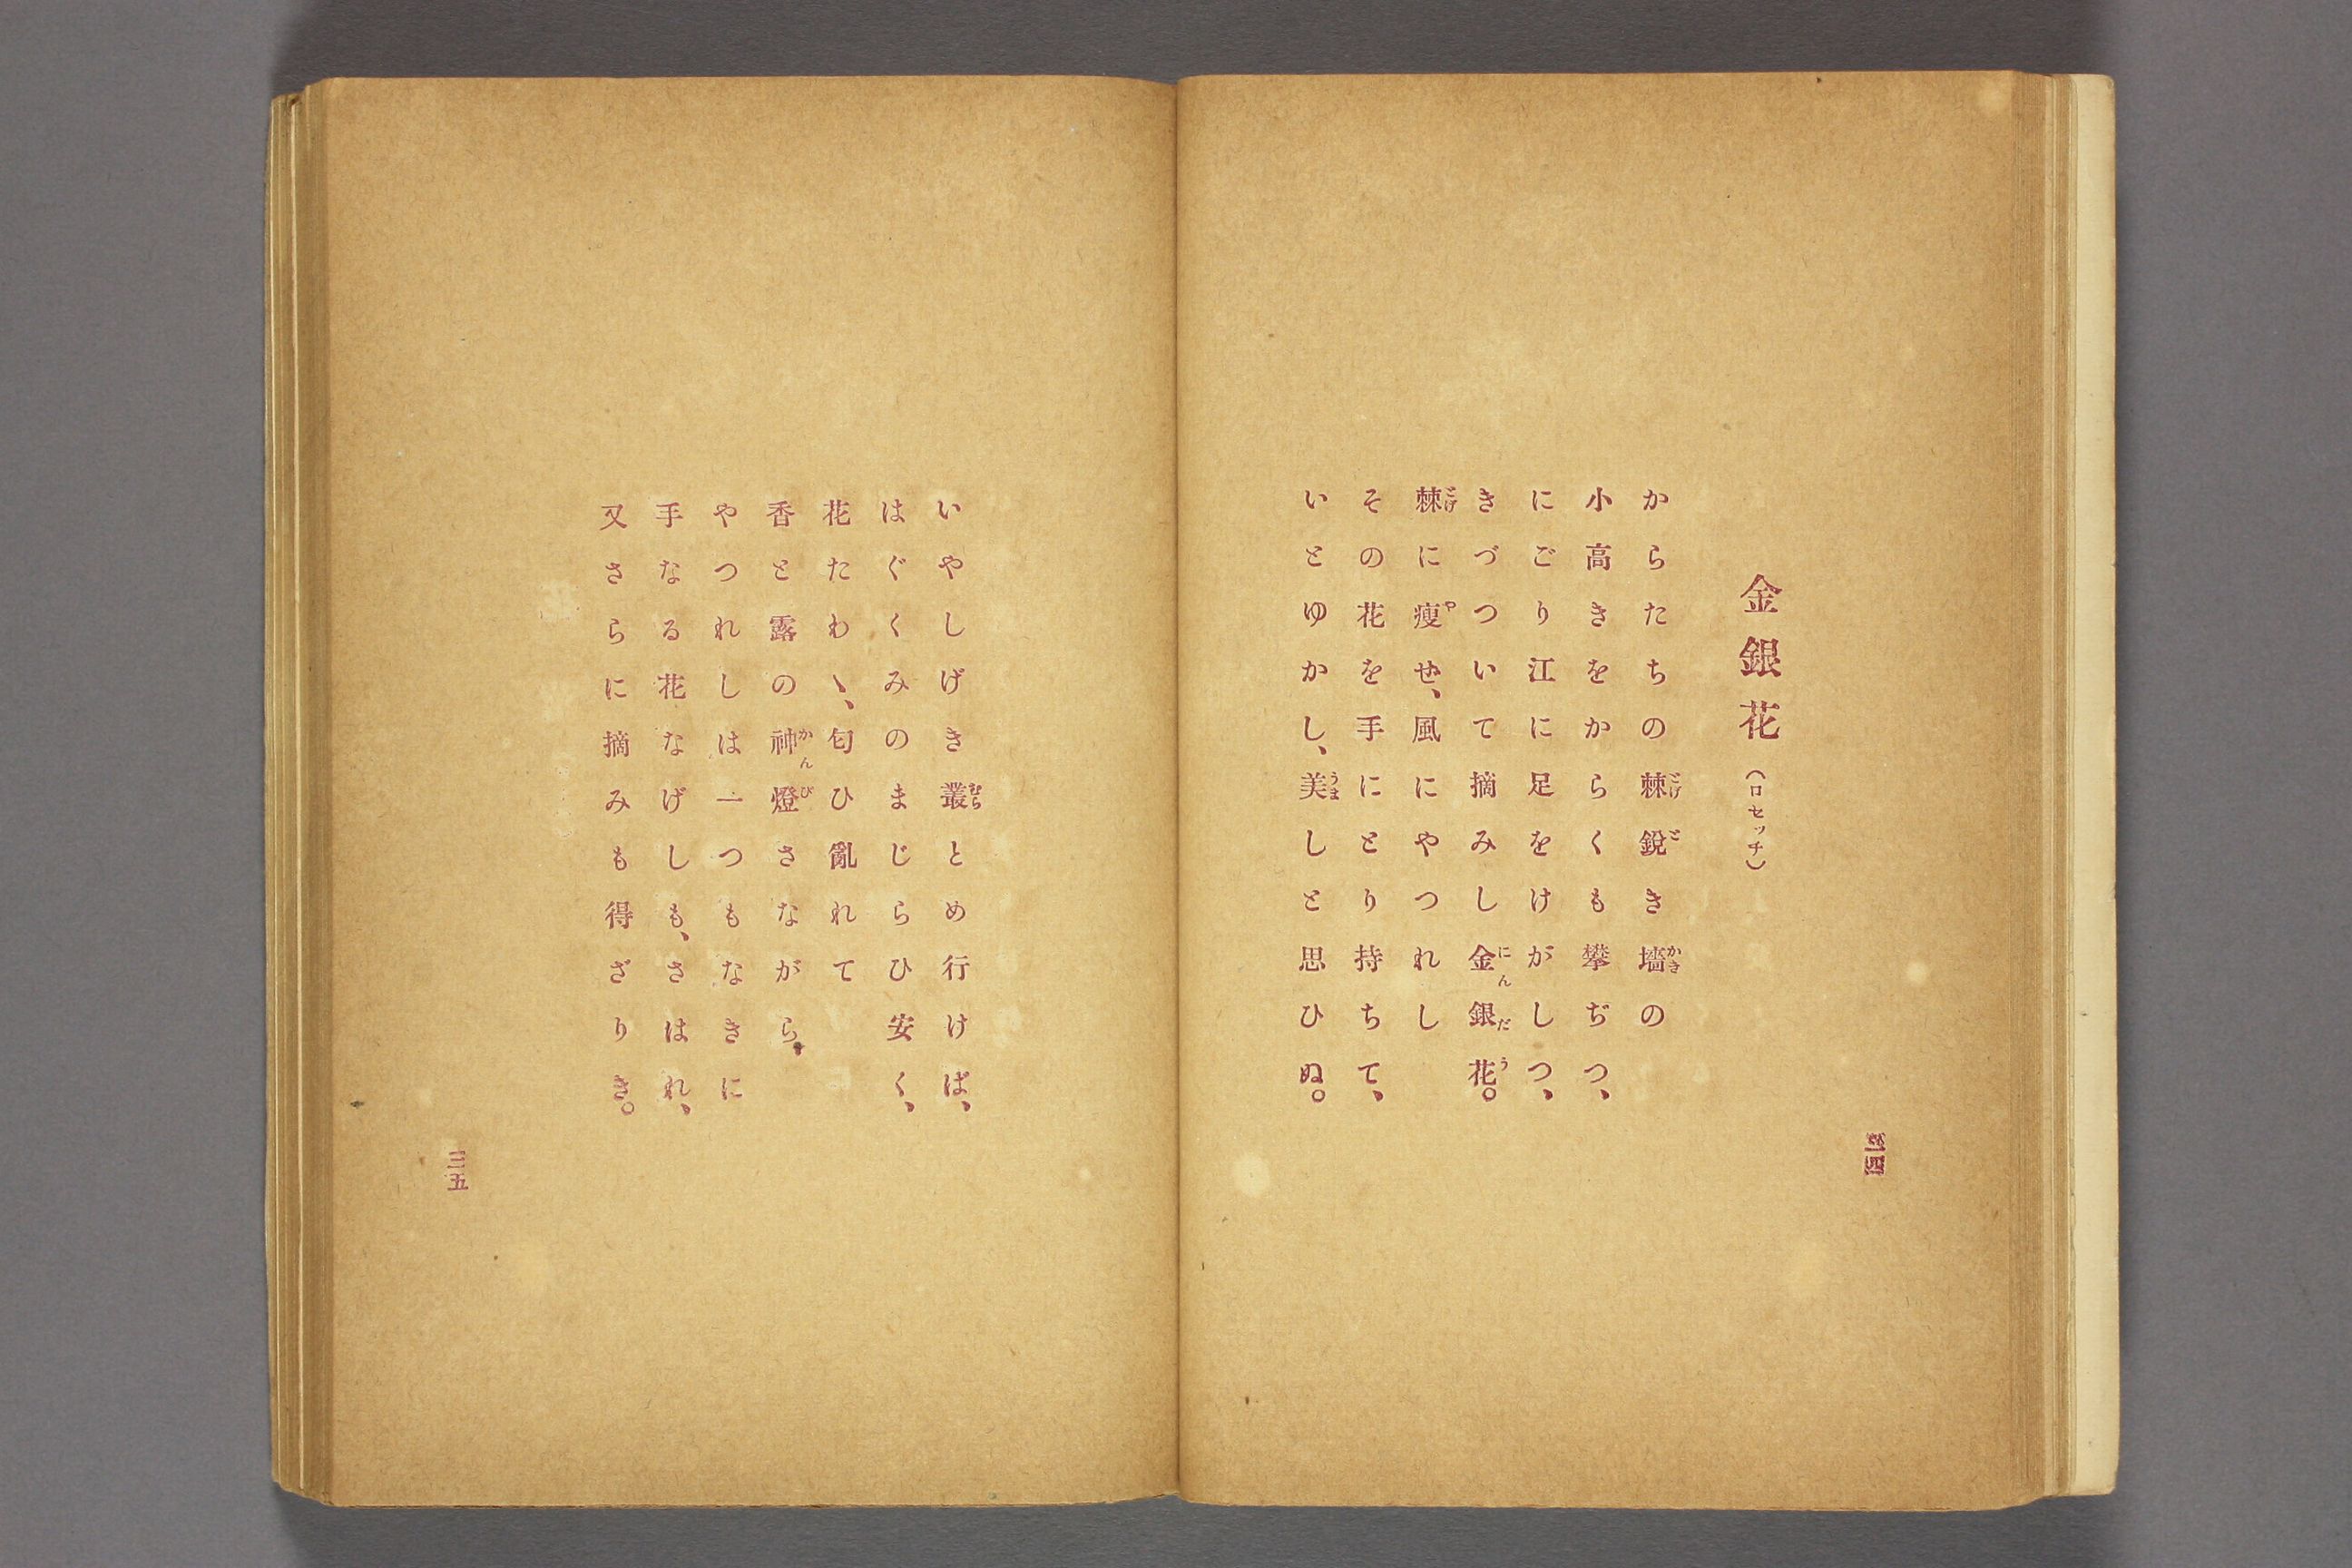 金銀花（ロセッチ）
からたちの棘鋭き墻の
小高きをからくも攀ぢつ、
にごり江に足をけがしつ、
きづついて摘みし金銀花。
棘に痩せ、風にやつれし
その花を手にとり持ちて、
いとゆかし、美しと思ひぬ。
三四
いやしげき叢とめ行けば、
はぐくみのまじらひ安く、
花たわゝ、匂ひ亂れて
香と露の神燈さながら、
やつれしは一つもなきに
手なる花なげしも、さはれ、
又さらに摘みも得ざりき。
三五